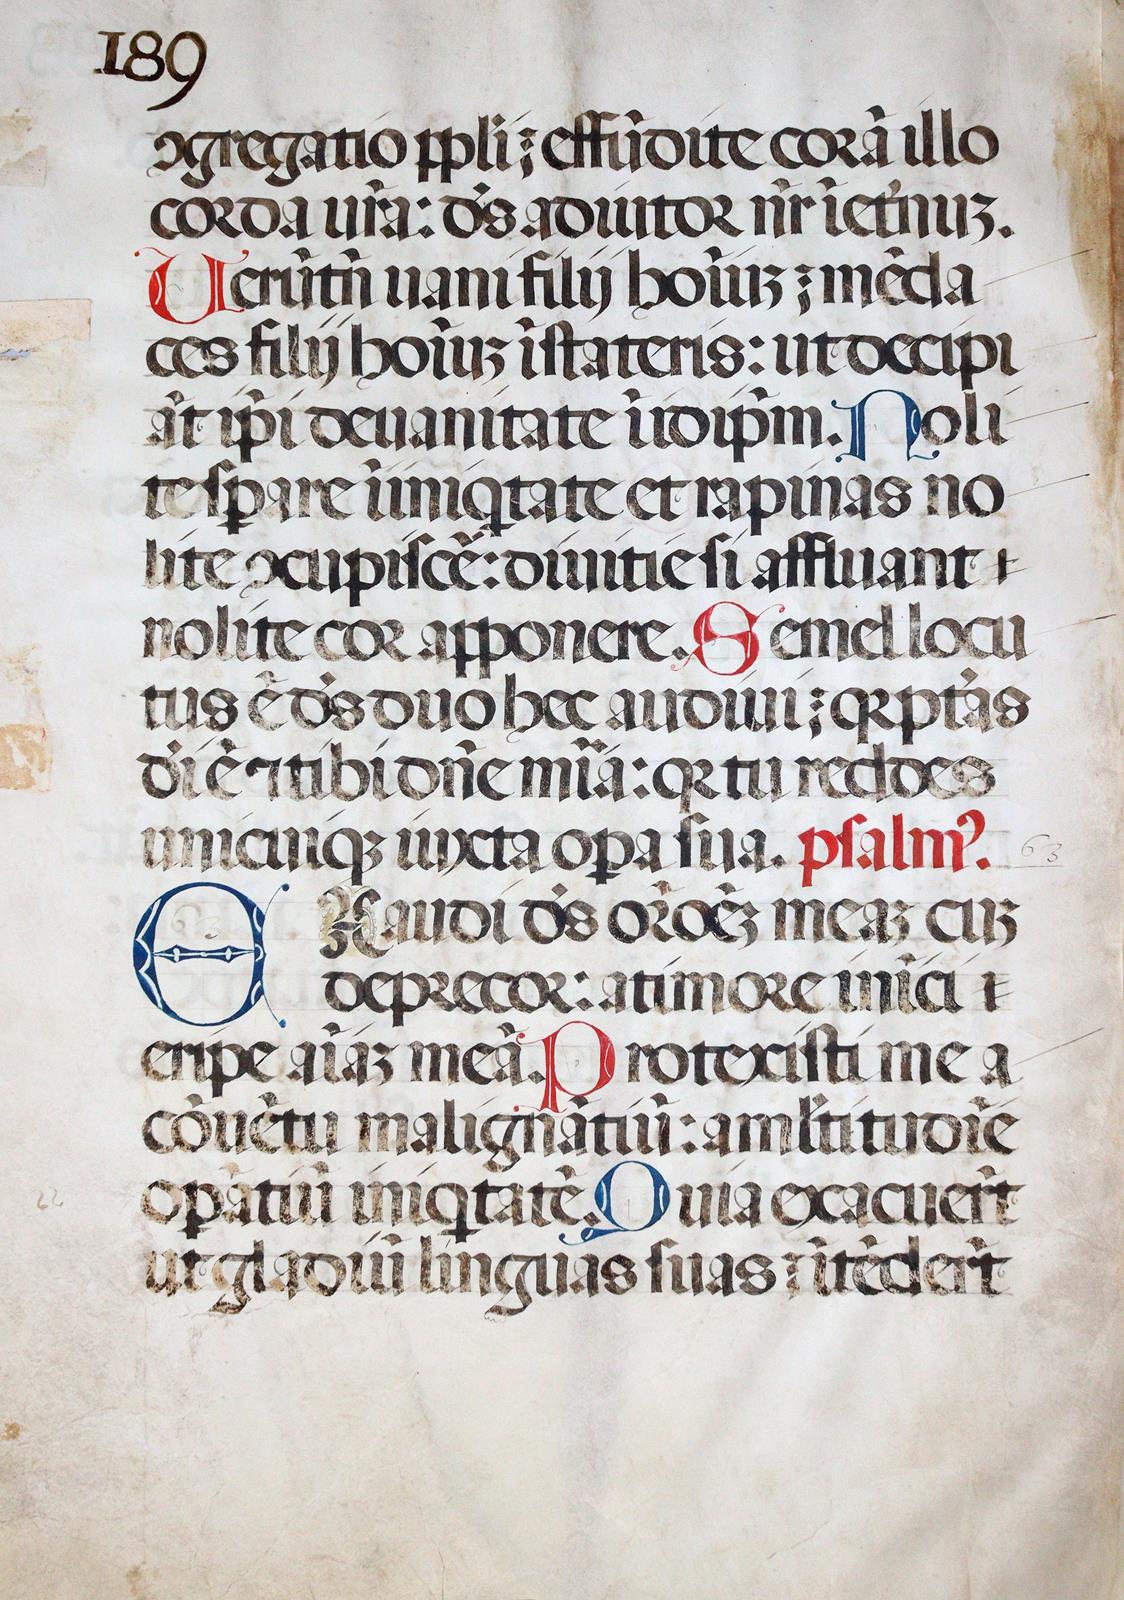 189
ꝯgregatio ppli; effũdite corã illo
corda ur̃a: d̃s adiutor nr̃ ĩet̃nuꝫ.
Uerũtñ uani filij hoĩuꝫ; mẽda
ces filij hoĩuꝫ ĩ stateris: ut decipi
ãt ip̃i de uanitate ĩ idip̃m. Noli
te sꝑare ĩ iniq̃tate et rapinas no
lite ꝯcupiscẽ: diuitie si affluant
nolite cor apponere. Semel locu
tus ẽ d̃s duo hec audiui; qꝛ pt̃as
d̃i ẽ ⁊ tibi dñe mĩa: qꝛ tu reddes
unicuiqꝫ iuxta oꝑa sua. psalmꝰ. 63
EXaudi d̃s or̃oẽꝫ meaꝫ cuꝫ
deprecor: a timore inĩci
eripe aĩaꝫ meã. Protexisti me a
cõuẽtu malignãtiũ: a ml̃titudĩe
oꝑãtiũ iniq̃tatẽ. Quia exacuer̃t
ut gladiũ linguas suas; ĩtẽder̃t